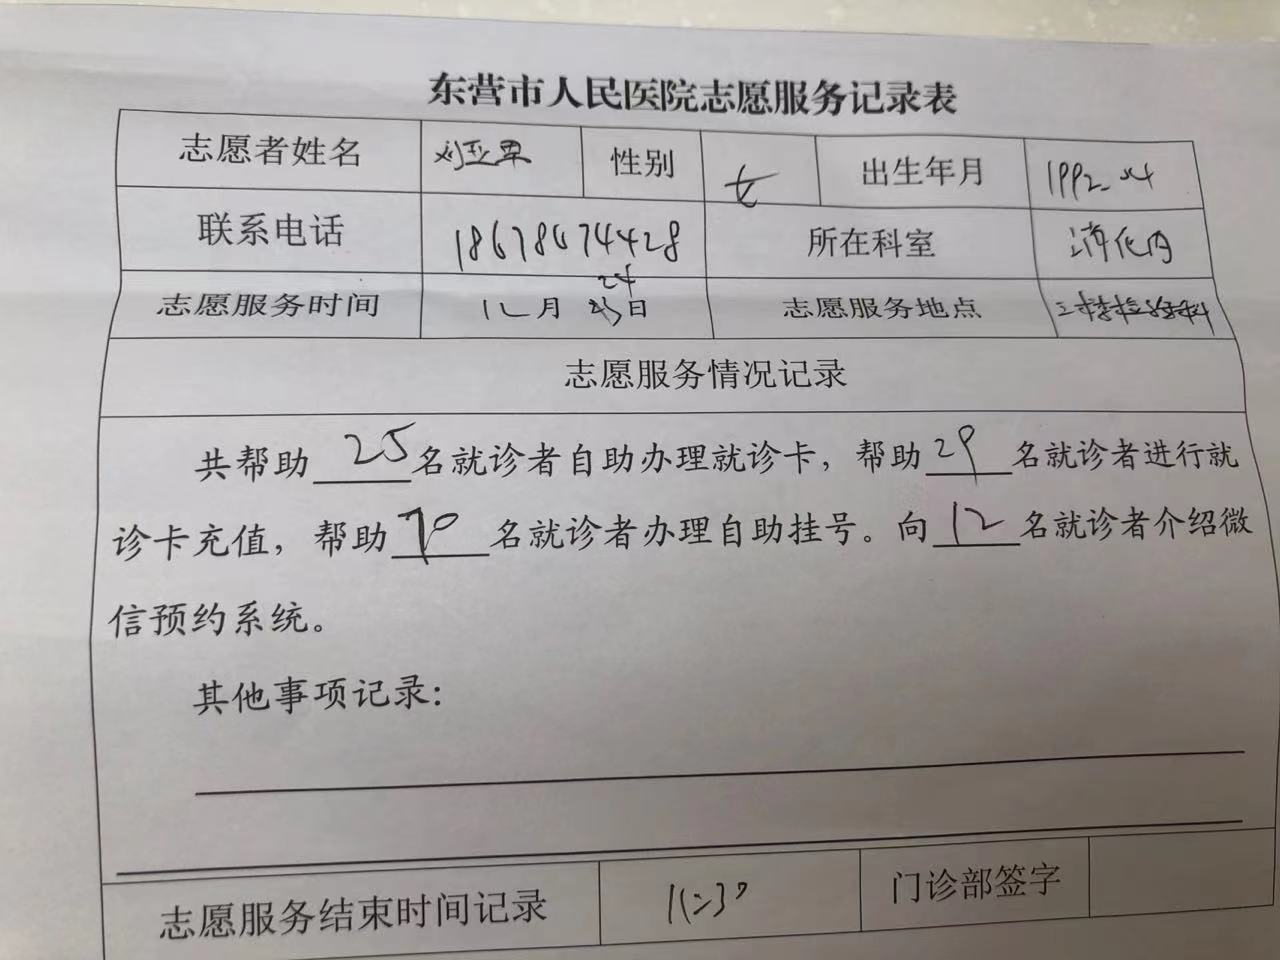 东营市人民医院志愿服务记录表
志愿者姓名 刘亚 性别 女 出生年月 1992.04
联系电话 18678674428 所在科室 消化内
24
志愿服务时间 12月 日 志愿服务地点 三楼检验科
志愿服务情况记录
共帮助25名就诊者自助办理就诊卡，帮助29名就诊者进行就
诊卡充值，帮助70名就诊者办理自助挂号。向12名就诊者介绍微
信预约系统。
其他事项记录：
志愿服务结束时间记录 11:30 门诊部签字